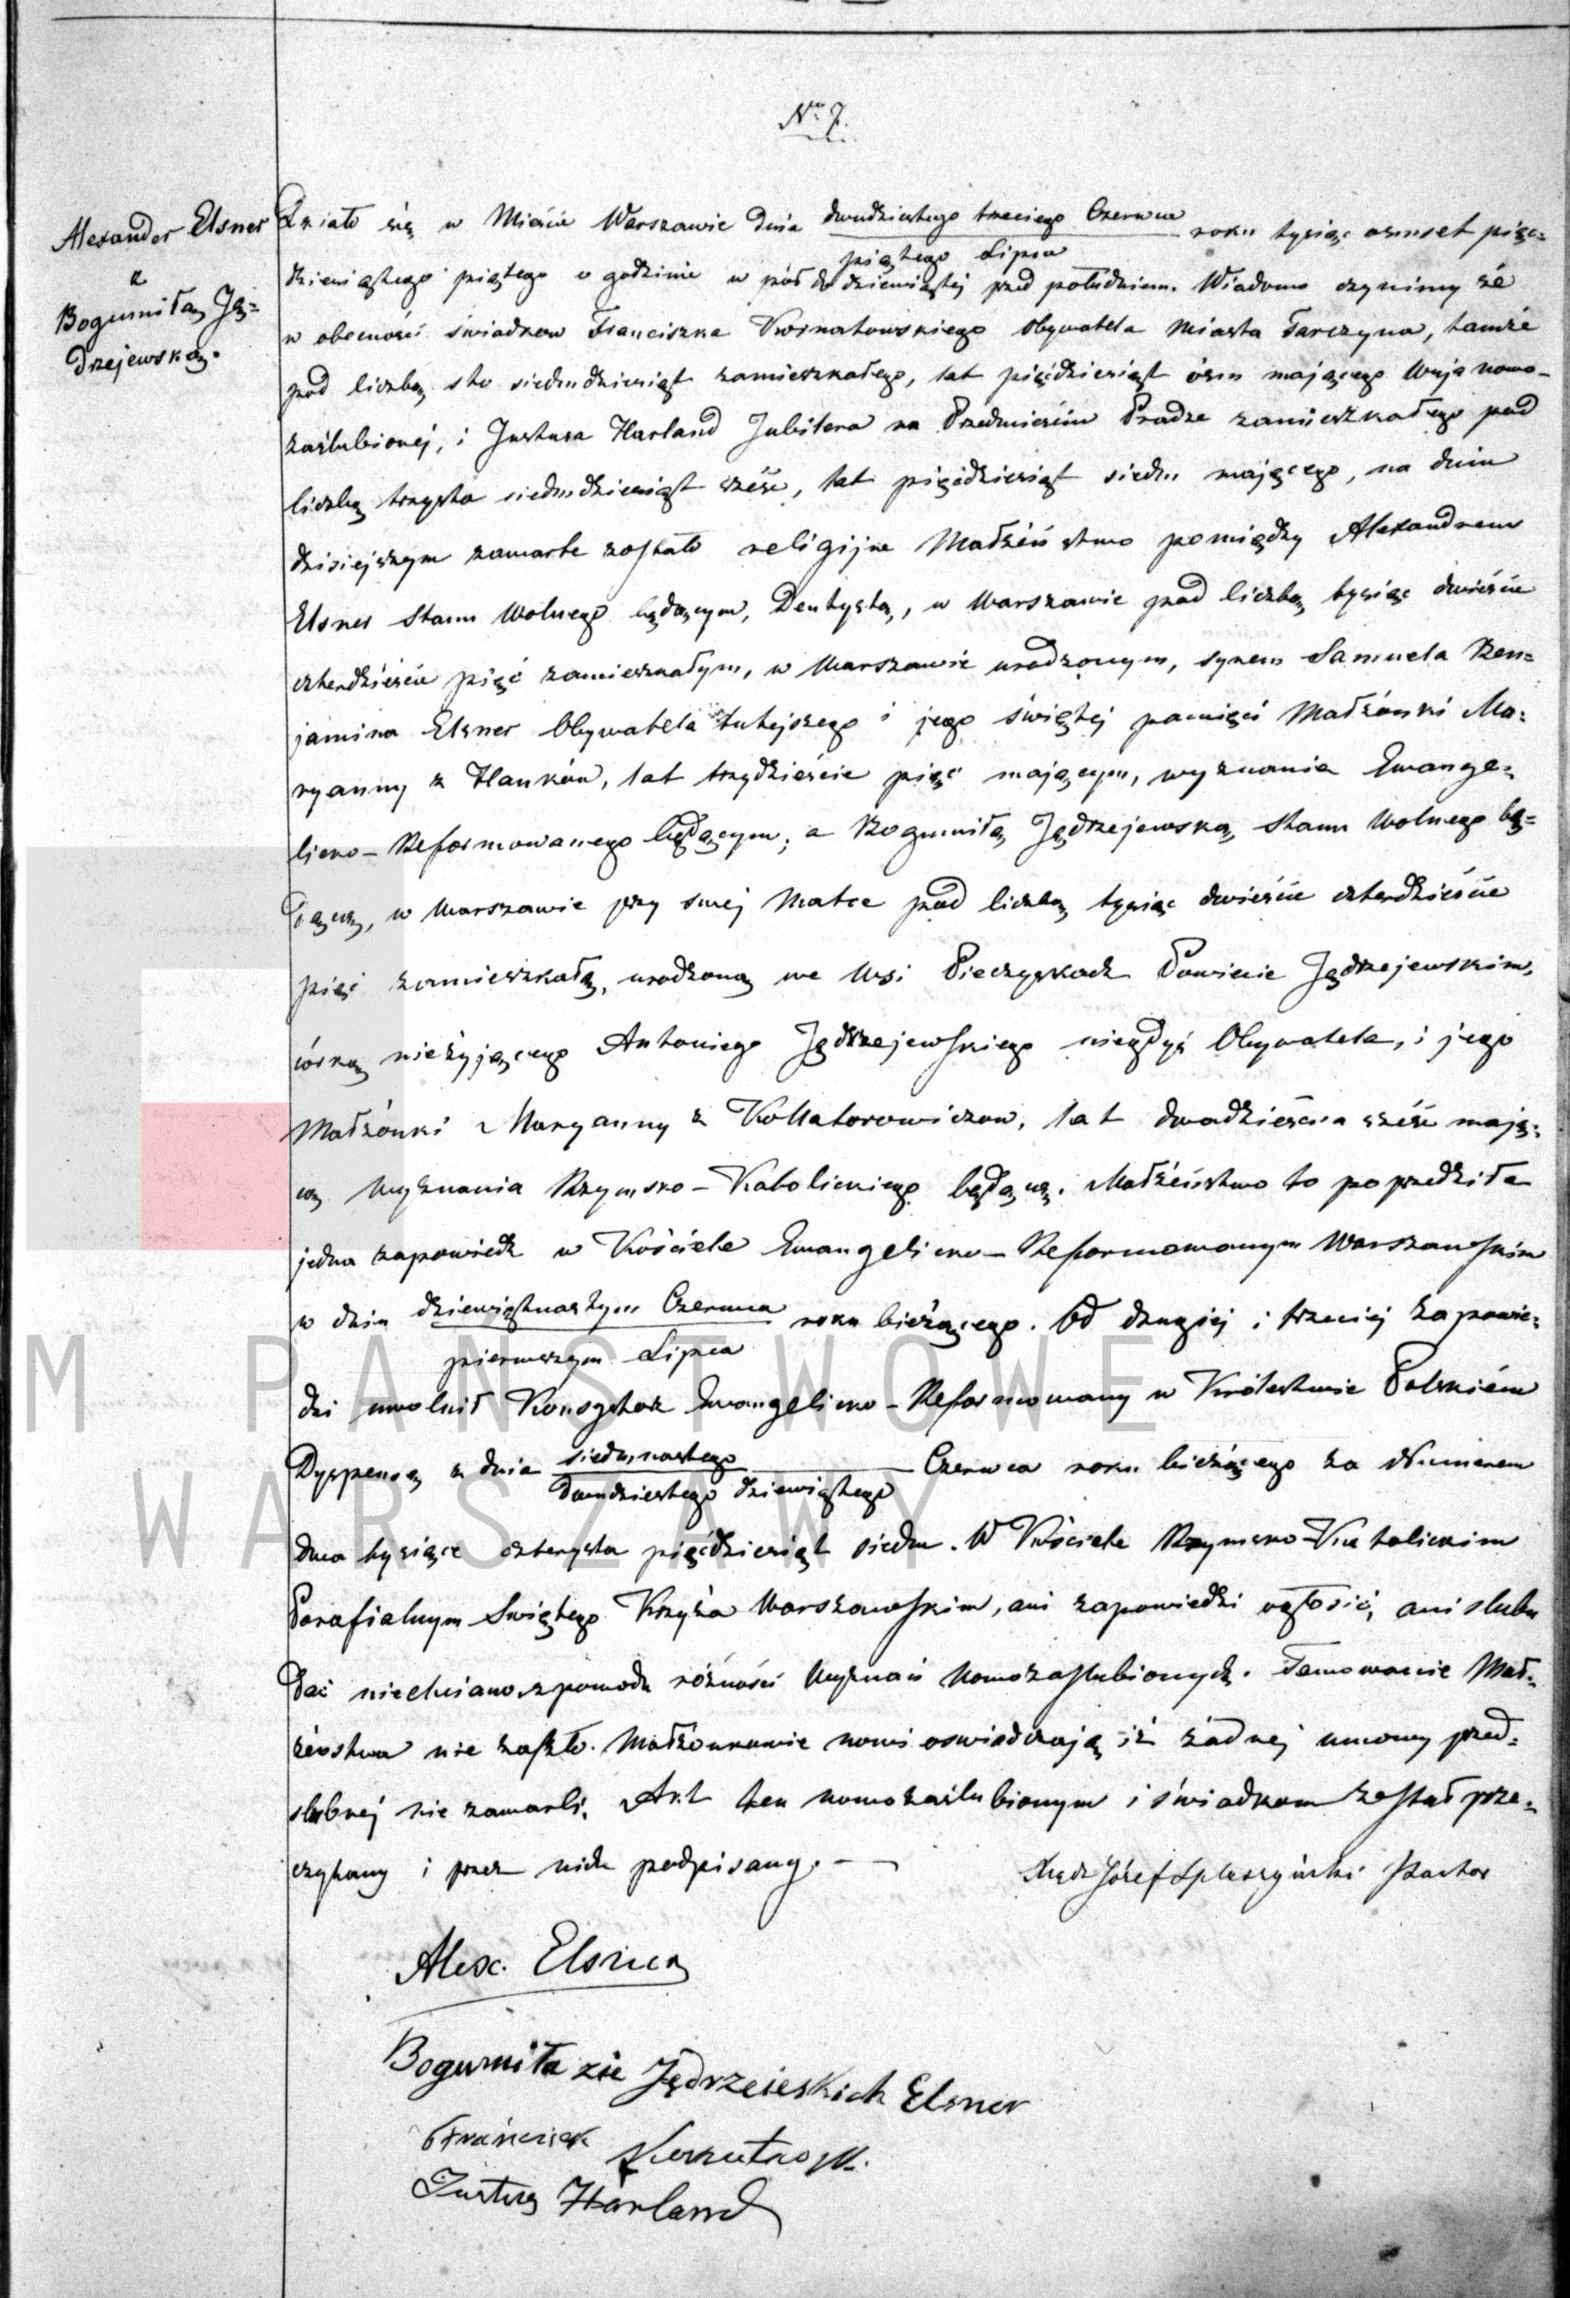 No 7.
Alexander Elsner
z
Bogumiłą Ję=
drzejewską.
Działo się w Mieście Warszawie dnia dwudziestego trzeciego Czerwca roku tysiąc osmset pięć=
piątego Lipca
dziesiątego piątego o godzinie w pół do dziewiątej przed południem. Wiadomo czynimy że
w obecności świadków Franciszka Kornatowskiego Obywatela Miasta Tarczyna, tamże
pod liczbą sto siedmdziesiąt zamieszkałego, lat pięćdziesiąt ósm mającego Wuja nowo-
zaślubionej, i Justusa Harland Jubilera na Przedmieściu Pradze zamieszkałego pod
liczbą trzysta siedmdziesiąt sześć, lat pięćdziesiąt siedm mającego, na dniu
dzisiejszym zawarte zostało religijne Małżeństwo pomiędzy Alexandrem
Elsner Stanu Wolnego będącym, Dentystą, w Warszawie pod liczbą tysiąc dwieście
czterdzieście pięć zamieszkałym, w Warszawie urodzonym, synem Samuela Ben=
jamina Elsner Obywatela tutejszego i jego świętej pamięci Małżonki Ma=
ryanny z Hauków, lat trzydzieście pięć mającym, wyznania Ewange=
licko-Reformowanego będącym; a Bogumiłą Jędrzejewską, Stanu Wolnego bę=
dącą, w Warszawie przy swej Matce pod liczbą tysiąc dwieście czterdzieście
pięć zamieszkałą, urodzoną we Wsi Pieczyskach Powiecie Jędrzejewskim,
córką nieżyjącego Antoniego Jędrzejewskiego niegdyś Obywatela, i jego
Małżonki Maryanny z Kollatorowiczów, lat dwadzieścia sześć mają=
cą Wyznania Rzymsko-Katolickiego będącą. Małżeństwo to poprzedziła
jedna zapowiedź w Kościele Ewangelicko-Reformowanym Warszawskim
w dniu dziewiętnastym Czerwca roku bieżącego. Od drugiej i trzeciej zapowie=
pierwszym Lipca
dzi uwolnił Konsystorz Ewangelicko-Reformowany w Królestwie Polskiém
Dyspensą z dnia siedmnastego Czerwca roku bieżącego za Numerem
dwudziestego dziewiątego
dwa tysiące czterysta pięćdziesiąt siedm. W Kościele Rzymsko-Katolickim
Parafialnym Swiętego Krzyża Warszawskim, ani zapowiedzi ogłosić, ani slubu
dać niechciano, z powodu różności Wyznań Nowozaslubionych. Tamowanie Mał=
żeństwa nie zaszło. Małżonkowie nowi oswiadczają iż żadnej umowy przed=
slubnej nie zawarli. Akt ten nowozaślubionym i świadkom został prze=
czytany i przez nich podpisany.
Xiądz Józef Spleszyński Pastor
Alex. Elsner
Bogumiła zie Jędrzeieskich Elsner
Franciszek
Justus Harland
M PAŃSTWOWE
WARSZAWY